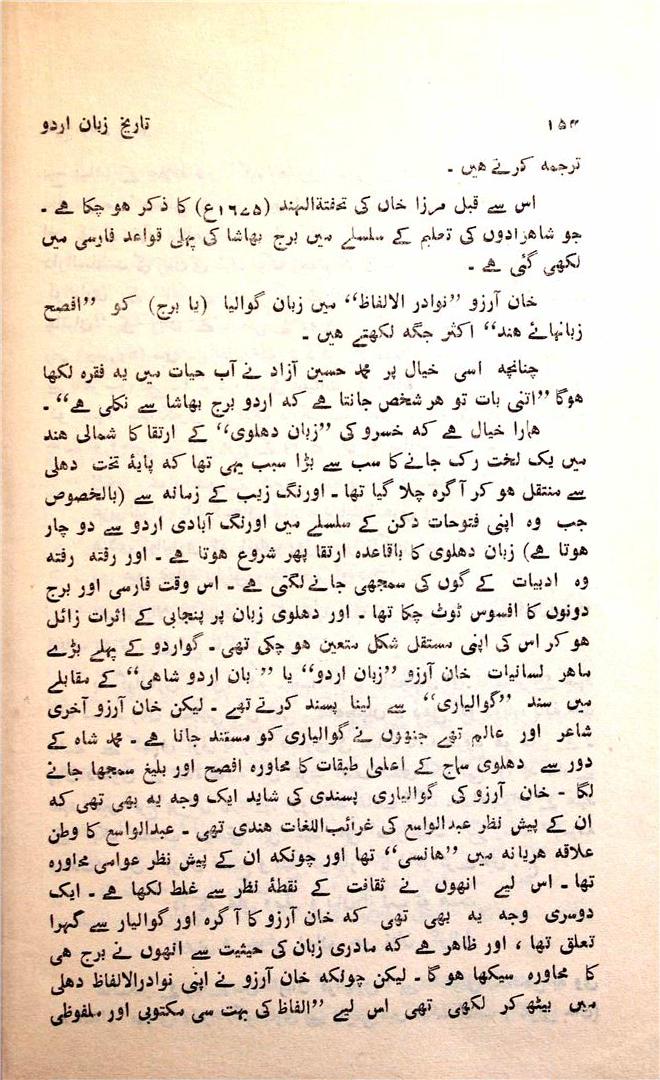 ۱۵۴ تاریخ زبان اردو
ترجمہ کرتے ہیں ۔
اس سے قبل مرزا خاں کی تحفتۃالہند (۱۶۷۵ع) کا ذکر ہو چکا ہے ۔
جو شاہزادوں کی تعلیم کے سلسلے میں برج بھاشا کی پہلی قواعد فارسی میں
لکھی گئی ہے ۔
خان آرزو ”نوادر الالفاظ“ میں زبان گوالیا (یا برج) کو ”افصح
زبانہائے ہند“ اکثر جگہ لکھتے ہیں ۔
چنانچہ اسی خیال پر محمد حسین آزاد نے آب حیات میں یہ فقرہ لکھا
ہوگا ”اتنی بات تو ہر شخص جانتا ہے کہ اردو برج بھاشا سے نکلی ہے“ ۔
ہمارا خیال ہے کہ خسرو کی ”زبان دہلوی“ کے ارتقا کا شمالی ہند
میں یک لخت رک جانے کا سب سے بڑا سبب یہی تھا کہ پایۂ تخت دہلی
سے منتقل ہو کر آگرہ چلا گیا تھا ۔ اورنگ زیب کے زمانہ سے (بالخصوص
جب وہ اپنی فتوحات دکن کے سلسلے میں اورنگ آبادی اردو سے دو چار
ہوتا ہے) زبان دہلوی کا باقاعدہ ارتقا پھر شروع ہوتا ہے ۔ اور رفتہ رفتہ
وہ ادبیات کے گوں کی سمجھی جانے لگتی ہے ۔ اس وقت فارسی اور برج
دونوں کا افسوس ٹوٹ چکا تھا ۔ اور دہلوی زبان پر پنجابی کے اثرات زائل
ہو کر اس کی اپنی مستقل شکل متعین ہو چکی تھی ۔ گو اردو کے پہلے بڑے
ماہر لسانیات خان آرزو ”زبان اردو“ یا ” بان اردو شاہی“ کے مقابلے
میں سند ”گوالیاری“ سے لینا پسند کرتے تھے ۔ لیکن خان آرزو آخری
شاعر اور عالم تھے جنہوں نے گوالیاری کو مستند جانا ہے ۔ محمد شاہ کے
دور سے دہلوی سماج کے اعلیٰ طبقات کا محاورہ افصح اور بلیغ سمجھا جانے
لگا ۔ خان آرزو کی گوالیاری پسندی کی شاید ایک وجہ یہ بھی تھی کہ
ان کے پیش نظر عبدالواسع کی غرائب اللغات ہندی تھی ۔ عبدالواسع کا وطن
علاقہ ہریانہ میں ”ہانسی“ تھا اور چونکہ ان کے پیش نظر عوامی محاورہ
تھا ۔ اس لیے انھوں نے ثقافت کے نقطۂ نظر سے غلط لکھا ہے ۔ ایک
دوسری وجہ یہ بھی تھی کہ خان آرزو کا آگرہ اور گوالیار سے گہرا
تعلق تھا ، اور ظاہر ہے کہ مادری زبان کی حیثیت سے انھوں نے برج ہی
کا محاورہ سیکھا ہو گا ۔ لیکن چونکہ خان آرزو نے اپنی نوادرالالفاظ دہلی
میں بیٹھ کر لکھی تھی اس لیے ”الفاظ کی بہت سی مکتوبی اور ملفوظی